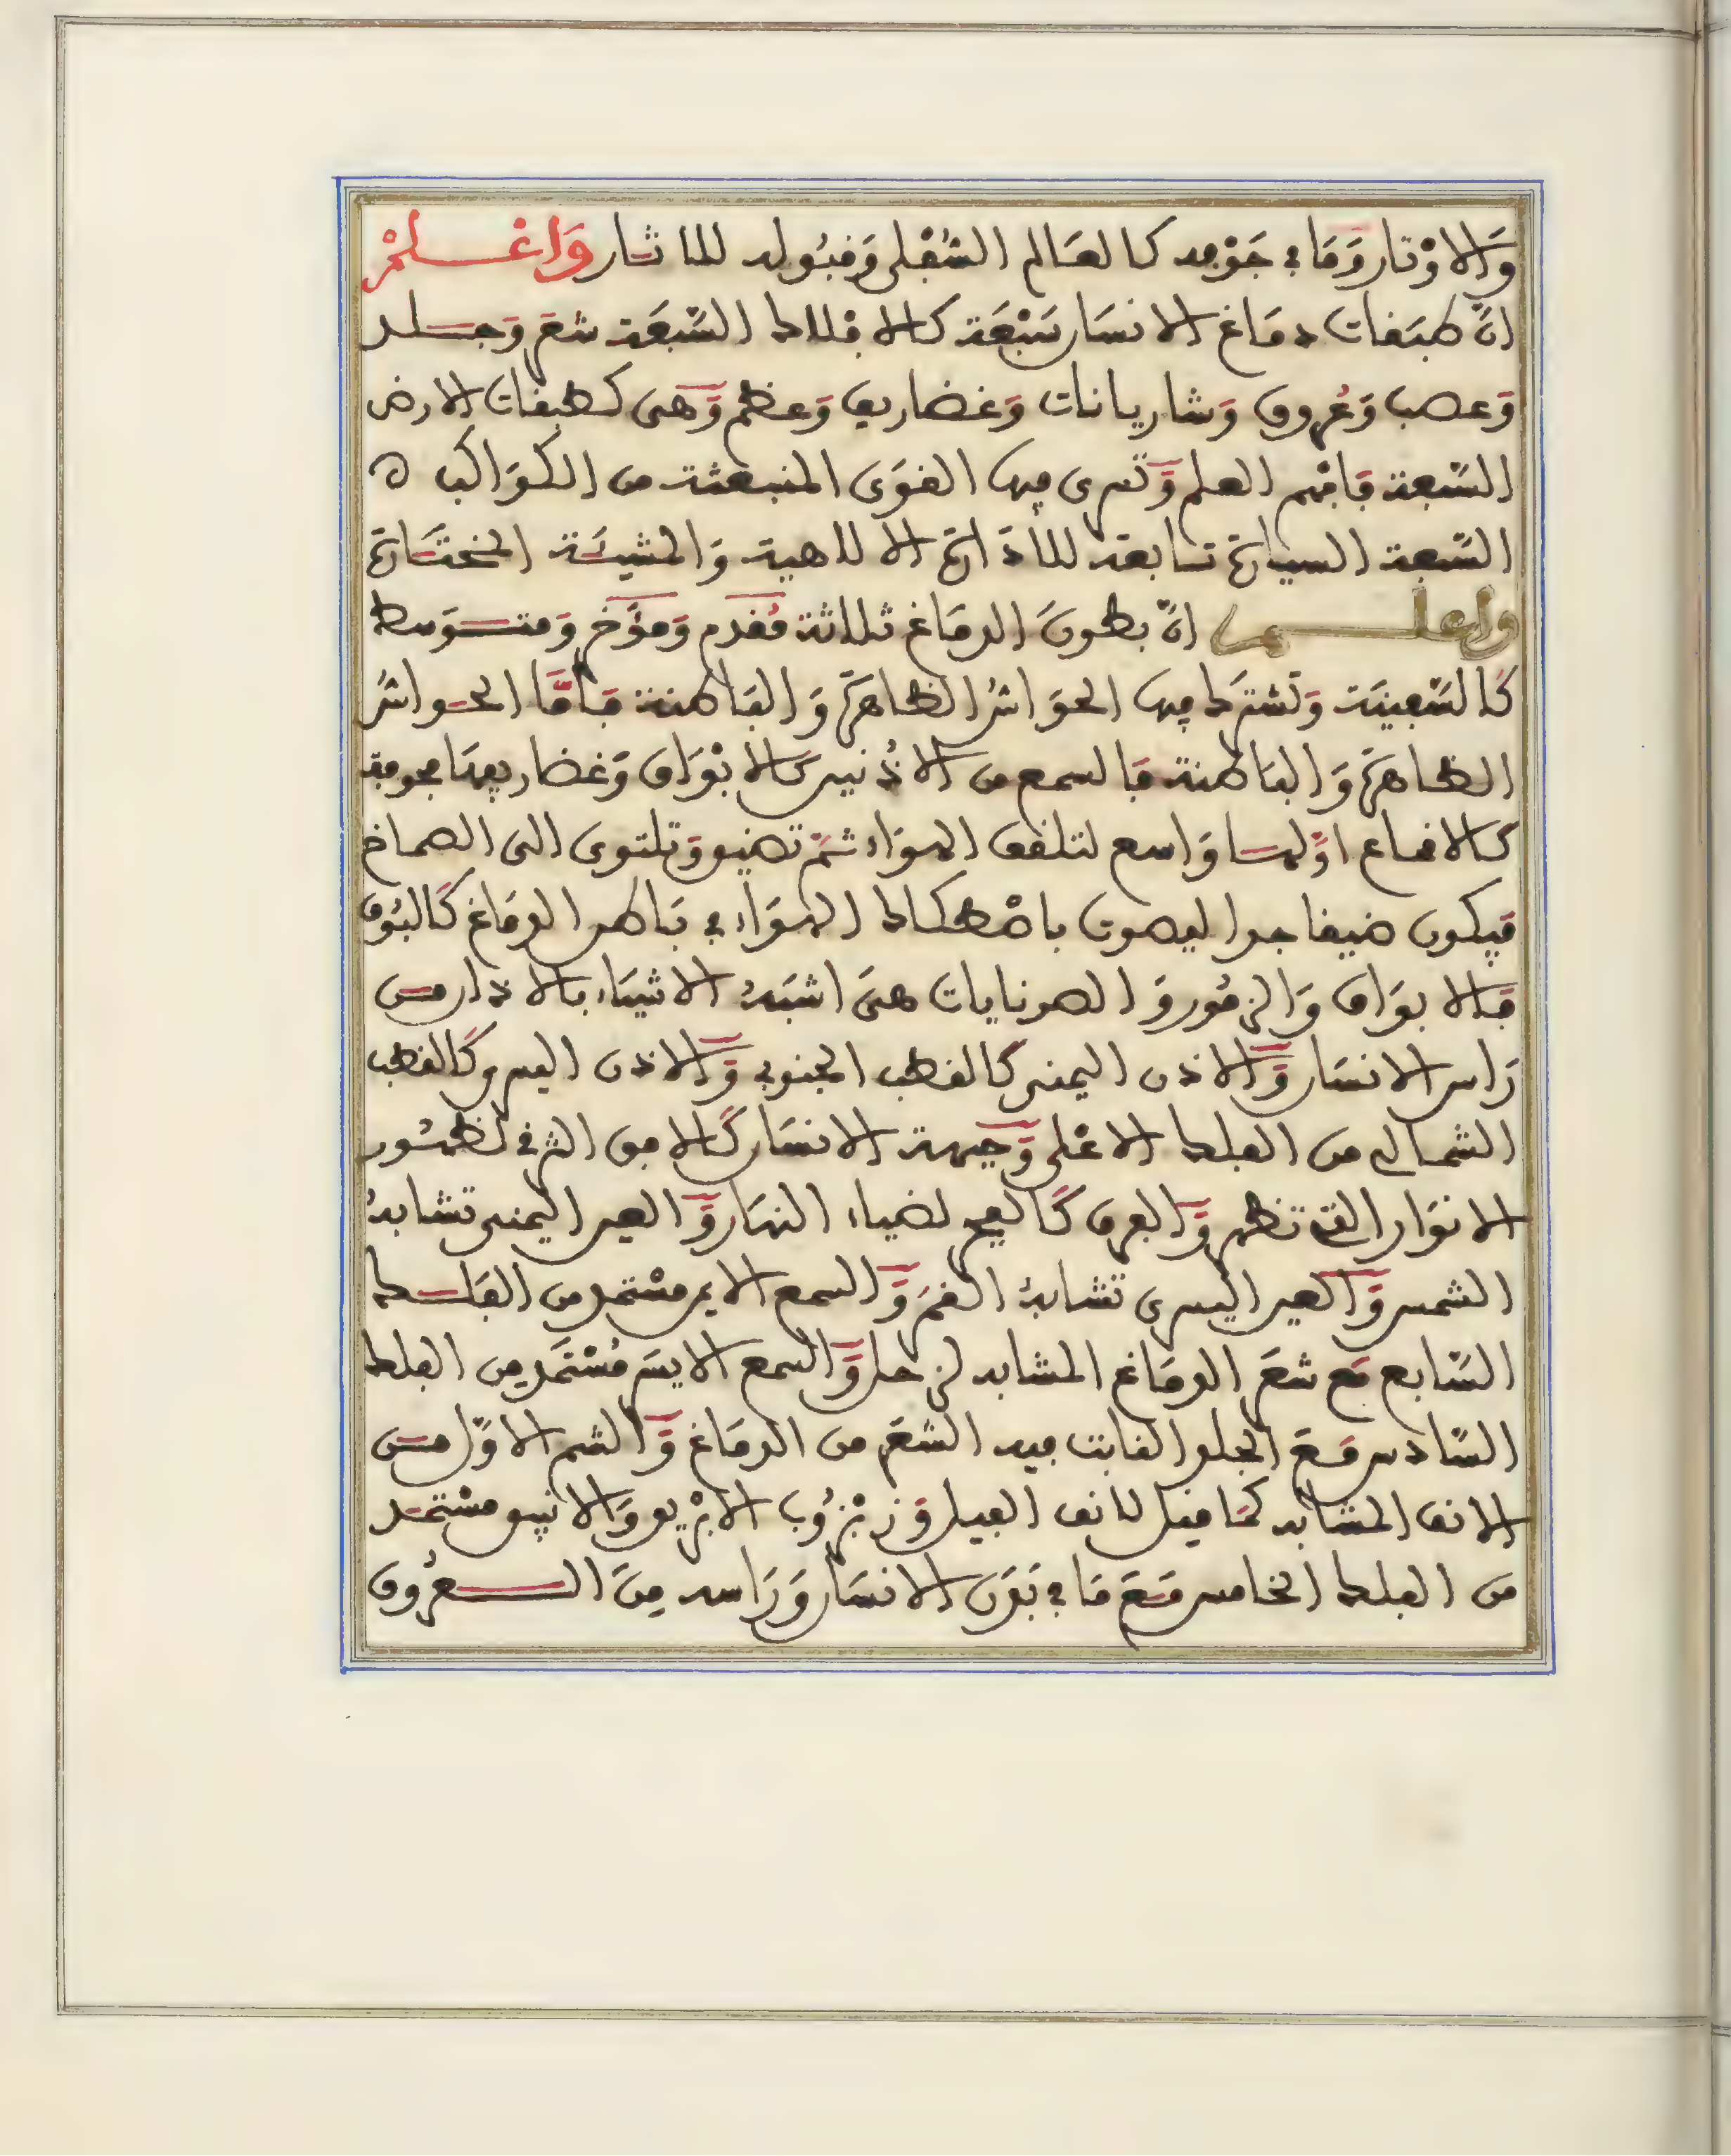 وَالاوْتار وَمَا في جَوْفه كالعَالم السُّفْلى وَقبُوله للاثار وَاعْلمْ
انّ طبَقات دمَاغ الانسَان سَبْعَة كالافْلاك السّبعَة شعَر وَجلد
وَعصب وَعُروق وَشاريانات وَغضاريف وَعظم وَهى كطبقات الارض
السّبعة فافهم العلم وَتسرى فيها القوَى المنبعثة من الكوَاكب ه
السّبعة السيارة تابعة للارادة الالاهية وَالمشيئَة المختَارة
واعلم انّ بطونَ الدمَاغ ثلاثة مُقدم وَمؤَخر وَمتوَسط
كَالسّفينَة وَتشترك فيها الحوَاسُّ الظاهرَة وَالبَاطنة فأمَّا الحواسُّ
الظاهرَة وَالبَاطنة فَالسمع من الاذُنين كالابْوَاق وَغضاريفهَا مجوفة
كالاقماع اوّلها وَاسع لتلقف الهوَاء ثمّ تضيق وَتلتوى الى الصماخ
فيكون ضيقا جدا ليصوت باصْطكاك الهوَاء في بَاطن الدمَاغ كَالبُوق
فَالابوَاق وَالزمُور وَالصونايات هىَ اشبَهُ الاشيَاء بالاذان من
رَاس الانسَان وَالاذن اليمنى كَالقطب الجنوبي وَالاذن اليسرى كَالقطب
الشمالى من الفلك الاعْلى وَجبهة الانسَان كَالافق الشرقى لظهُور
الانوَار التى تظهر وَالفرق كَالفجر لضياء النهَار وَالعين اليمنى تشابهُ
الشمس وَالعين اليسرى تشابهُ القمَر وَالسمع الايمن مسْتمد من الفَلك
السّابع مَع شعَر الدمَاغ المشابه لزحل وَالسمع الايسَر مُسْتمَد من الفلك
السّادس مَعَ الجلد النابت فيه الشعَر من الدمَاغ وَالشم الاوّل من
الانف المشابه كمَا قيل لانف الفيل وَزبْزُوب الابْريق وَالانبيق مسْتمَد
من الفلك الخامس مَعَ مَا في بَدَن الانسَان وَرَاسه مِنَ العُروق